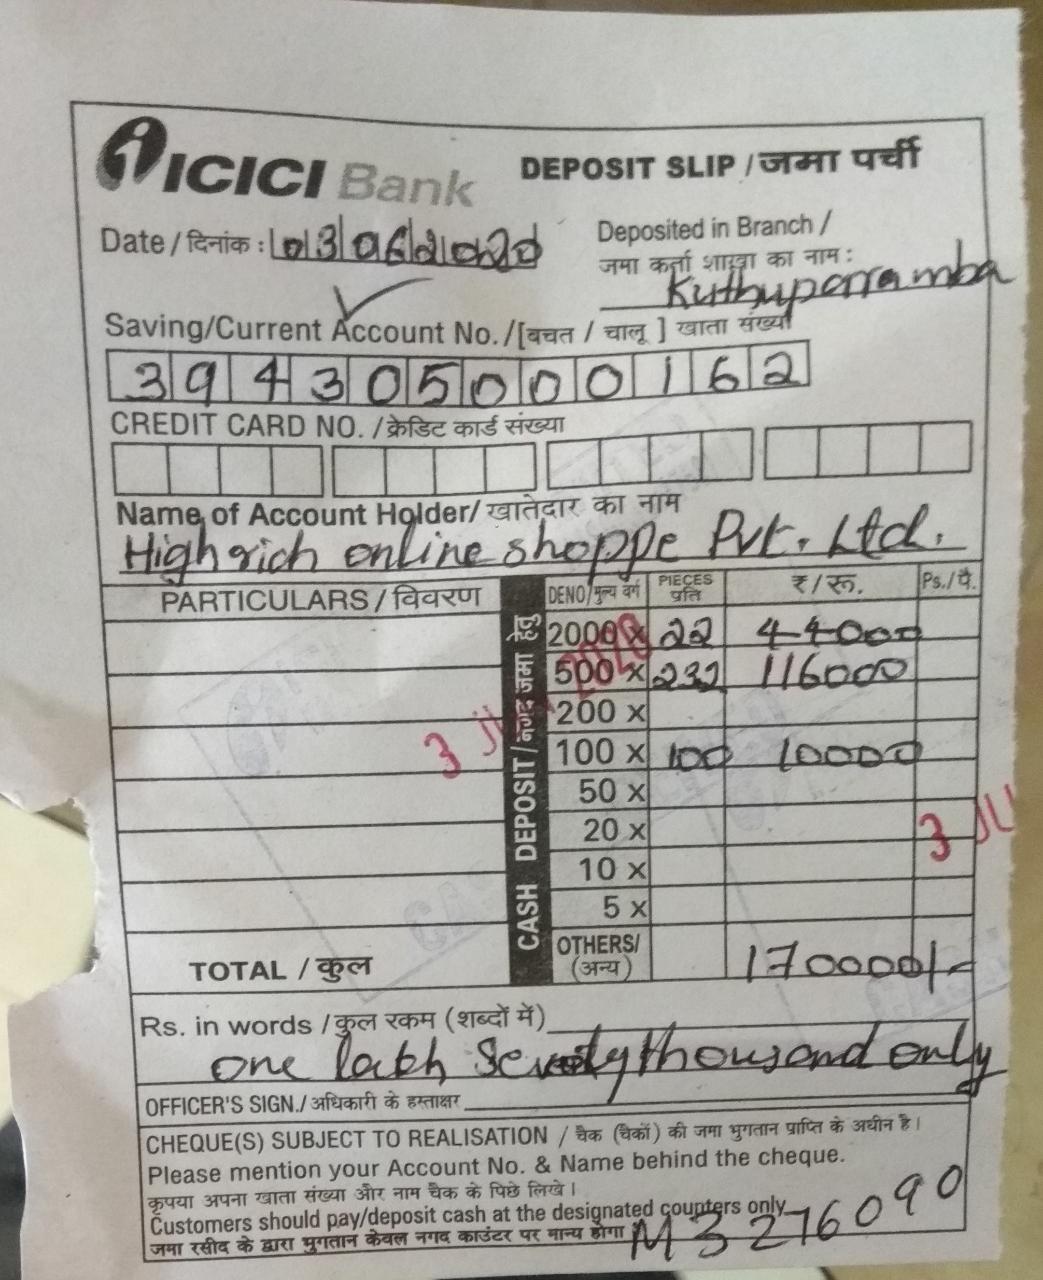 ICICI Bank DEPOSIT SLIP / जमा पर्ची
Date / दिनांक : 03062020
Deposited in Branch /
जमा कर्ता शाखा का नाम :
Kuthuparramba
Saving/Current Account No./[बचत / चालू ] खाता संख्या
394305000162
CREDIT CARD NO. / क्रेडिट कार्ड संख्या
Name of Account Holder/ खातेदार का नाम
Highrich online shoppe Pvt. Ltd.
PARTICULARS / विवरण
CASH DEPOSIT / नगद जमा हेतु
DENO/मुल्य वर्ग PIECES प्रति ₹ / रू. Ps./पै.
2000 x 22 44000
500 x 232 116000
200 x
100 x 100 10000
50 x
20 x
10 x
5 x
OTHERS/ (अन्य)
TOTAL / कुल 170000/-
3 2020
3 JU
Rs. in words / कुल रकम (शब्दों में)
one lakh Seventy thousand only
OFFICER'S SIGN./ अधिकारी के हस्ताक्षर
CHEQUE(S) SUBJECT TO REALISATION / चैक (चैकों) की जमा भुगतान प्राप्ति के अधीन है।
Please mention your Account No. & Name behind the cheque.
कृपया अपना खाता संख्या और नाम चैक के पिछे लिखे।
Customers should pay/deposit cash at the designated counters only
जमा रसीद के द्वारा भुगतान केवल नगद काउंटर पर मान्य होगा
M3276090